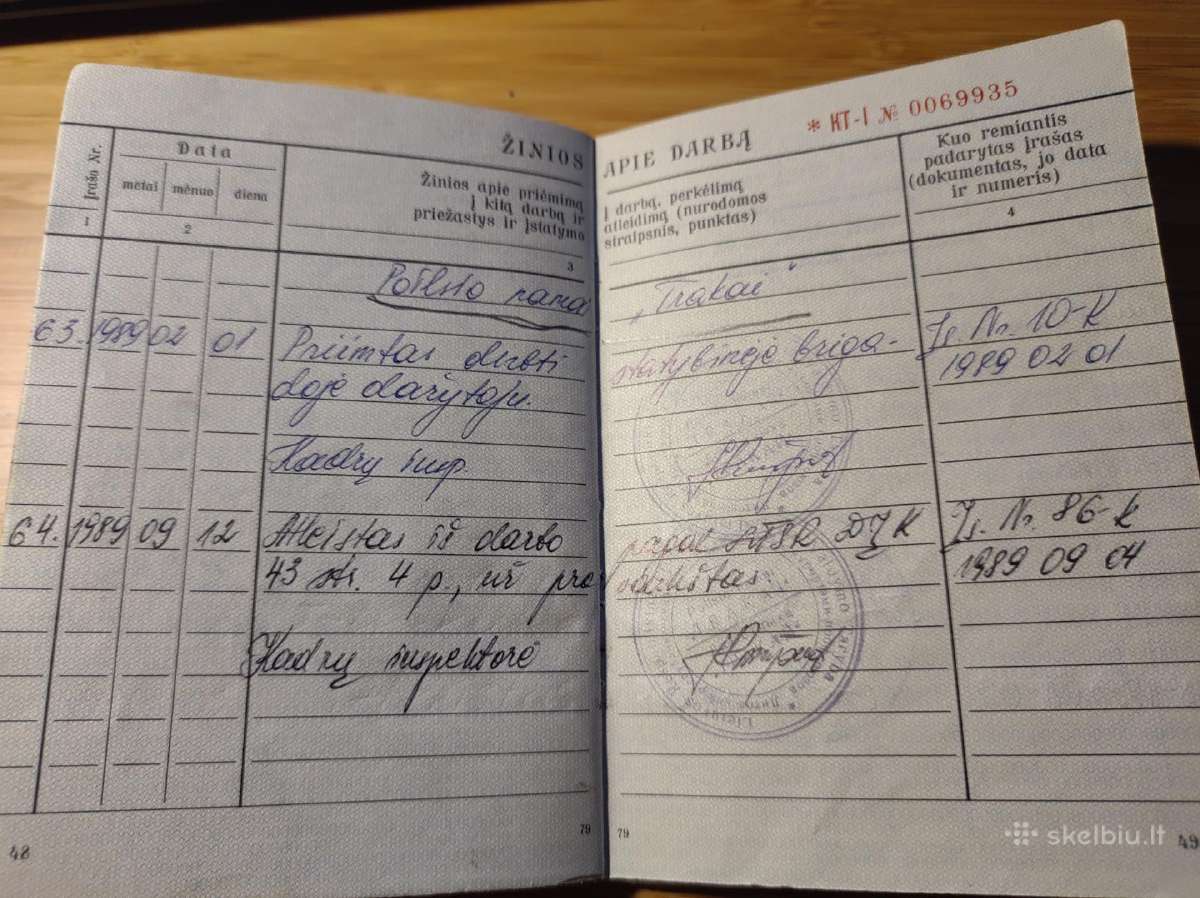 * KT-I № 0069935
ŽINIOS APIE DARBĄ
Įrašo Nr.
Data
metai mėnuo diena
Žinios apie priėmimą į darbą, perkėlimą
į kitą darbą ir atleidimą (nurodomos
priežastys ir įstatymo straipsnis, punktas)
Kuo remiantis
padarytas įrašas
(dokumentas, jo data
ir numeris)
1 2 3 4
Poilsio namai „Trakai"
63. 1989 02 01 Priimtas dirbti statybinėje briga- Įs. Nr. 10-K
doje dažytoju. 1989 02 01
Kadrų insp.
64. 1989 09 12 Atleistas iš darbo pagal LTSR DĮK Įs. Nr. 86-K
43 str. 4 p., už pravaikštas. 1989 09 04
Kadrų inspektorė
48 79 79 49
skelbiu.lt